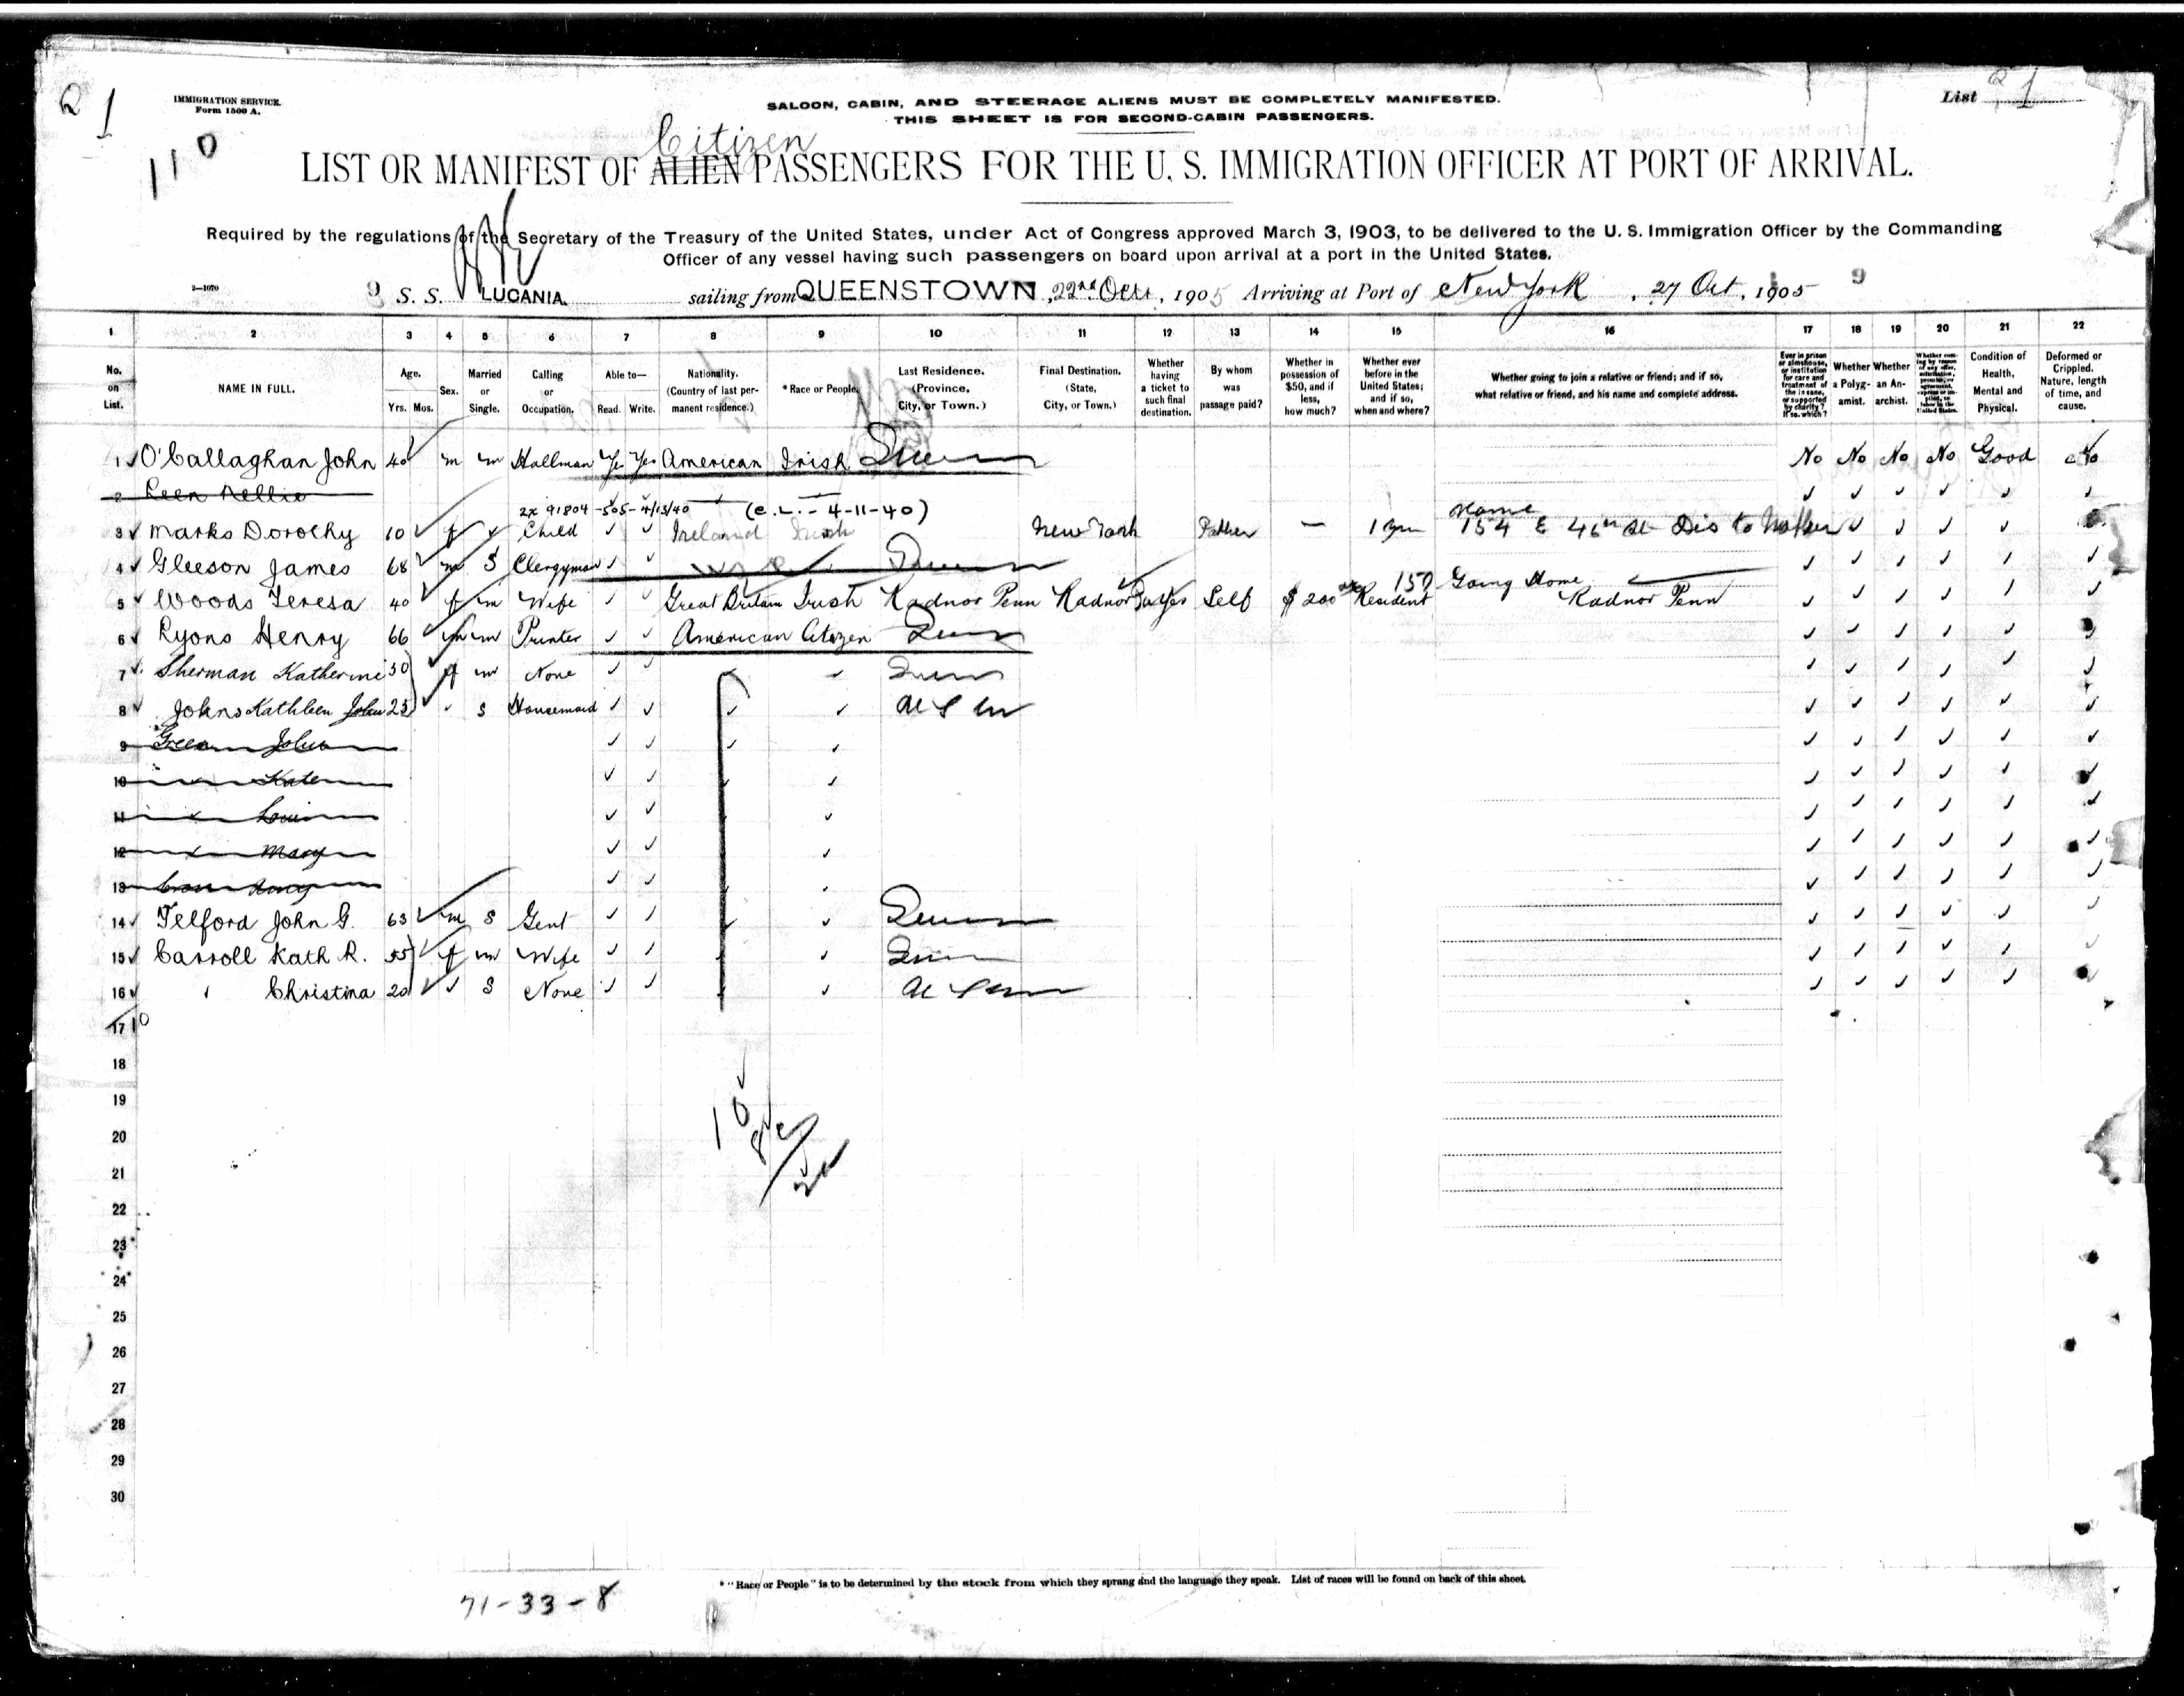 21
IMMIGRATION SERVICE.
Form 1500 A.
110
SALOON, CABIN, AND STEERAGE ALIENS MUST BE COMPLETELY MANIFESTED.
THIS SHEET IS FOR SECOND-CABIN PASSENGERS.
List 21
Citizen
LIST OR MANIFEST OF ALIEN PASSENGERS FOR THE U. S. IMMIGRATION OFFICER AT PORT OF ARRIVAL.
Required by the regulations of the Secretary of the Treasury of the United States, under Act of Congress approved March 3, 1903, to be delivered to the U. S. Immigration Officer by the Commanding
Officer of any vessel having such passengers on board upon arrival at a port in the United States.
2—1070
9 S. S. LUCANIA. sailing from QUEENSTOWN, 22nd Oct, 1905 Arriving at Port of New York, 27 Oct, 1905 9
1 2 3 4 5 6 7 8 9 10 11 12 13 14 15 16 17 18 19 20 21 22
No. on List.
NAME IN FULL.
Age. Yrs. Mos.
Sex.
Married or Single.
Calling or Occupation.
Able to— Read. Write.
Nationality. (Country of last permanent residence.)
* Race or People.
Last Residence. (Province, City, or Town.)
Final Destination. (State, City, or Town.)
Whether having a ticket to such final destination.
By whom was passage paid?
Whether in possession of $50, and if less, how much?
Whether ever before in the United States; and if so, when and where?
Whether going to join a relative or friend; and if so, what relative or friend, and his name and complete address.
Ever in prison or almshouse, or institution for care and treatment of the insane, or supported by charity? If so, which?
Whether a Polygamist.
Whether an Anarchist.
Whether coming by reason of any offer, solicitation, promise, or agreement, express or implied, to labor in the United States.
Condition of Health, Mental and Physical.
Deformed or Crippled. Nature, length of time, and cause.
1 O'Callaghan John 40 m m Hallman Yes Yes American Irish No No No No Good No
2 Nellie
2x 91804-505-4/13/40 (e.L. - 4-11-40)
Home
3 Marks Dorothy 10 f Child Ireland Irish New York Father — 154 E 46th St Dis to Mother
4 Gleeson James 68 m S Clergyman
150 Going Home
5 Woods Teresa 40 f m Wife Great Britain Irish Radnor Penn Radnor Pa Yes Self $200 Resident Radnor Penn
6 Ryons Henry 66 m m Printer American Citizen
7 Sherman Katherine 50 f m None
8 Johns Kathleen John 25 S Housemaid
9 Green John
10 Kate
11
12 Mary
13
14 Telford John G. 63 m S Gent
15 Carroll Kath R. 55 f m Wife
16 " Christina 20 S None
17 10
18
19
10
20
21
22
23
24
25
26
27
28
29
30
* "Race or People" is to be determined by the stock from which they sprang and the language they speak. List of races will be found on back of this sheet.
71-33-8